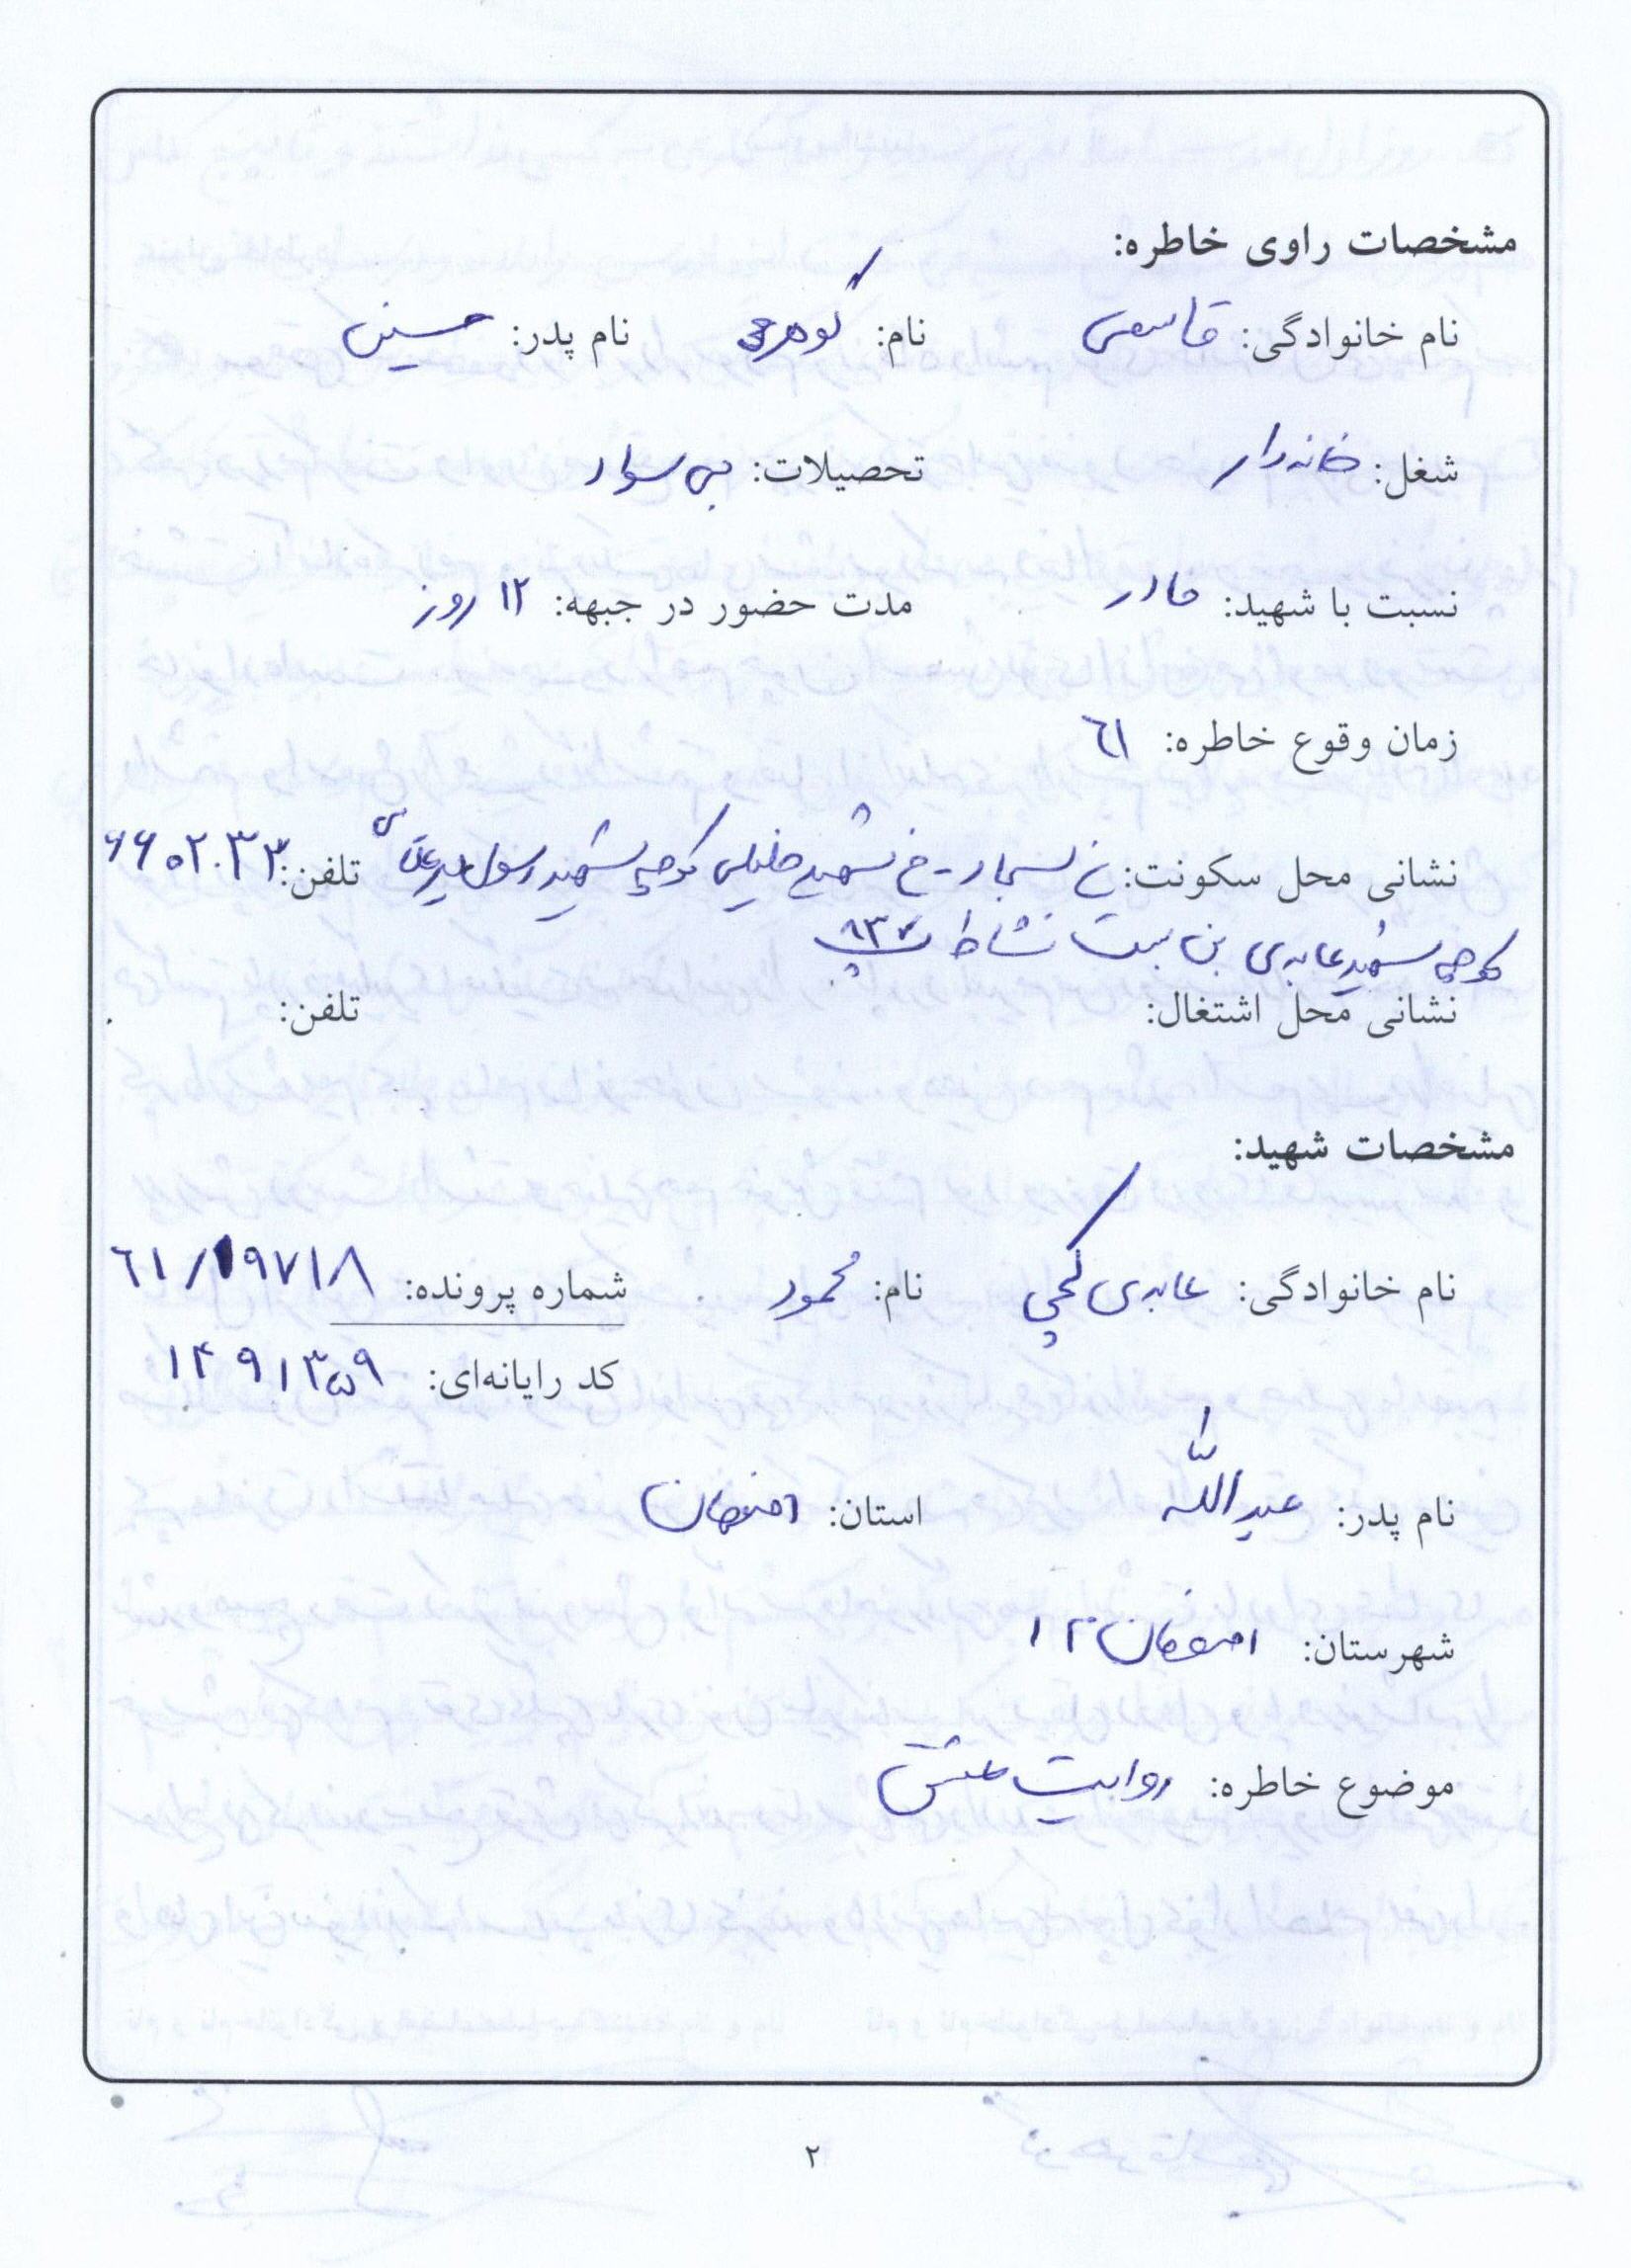 مشخصات راوی خاطره:
نام خانوادگی: قاسمی نام: گوهر نام پدر: حسین
شغل: خانه‌دار تحصیلات: بی سواد
نسبت با شهید: مادر مدت حضور در جبهه: ۱۲ روز
زمان وقوع خاطره: ٦١
نشانی محل سکونت: خ سجاد - خ شهید خلیلی کوچه شهید رسول تلفن: ۶۶۵۰۲۰۳۳
کوچه شهید عابدی بن بست نشاط
نشانی محل اشتغال: تلفن:
مشخصات شهید:
نام خانوادگی: عابدی کچی نام: محمود شماره پرونده: ٦١/١٩٧١٨
کد رایانه‌ای: ۱۴۹۱۳۵۹
نام پدر: عبدالله استان: اصفهان
شهرستان: اصفهان ۱۲
موضوع خاطره: روایت عشق
۲